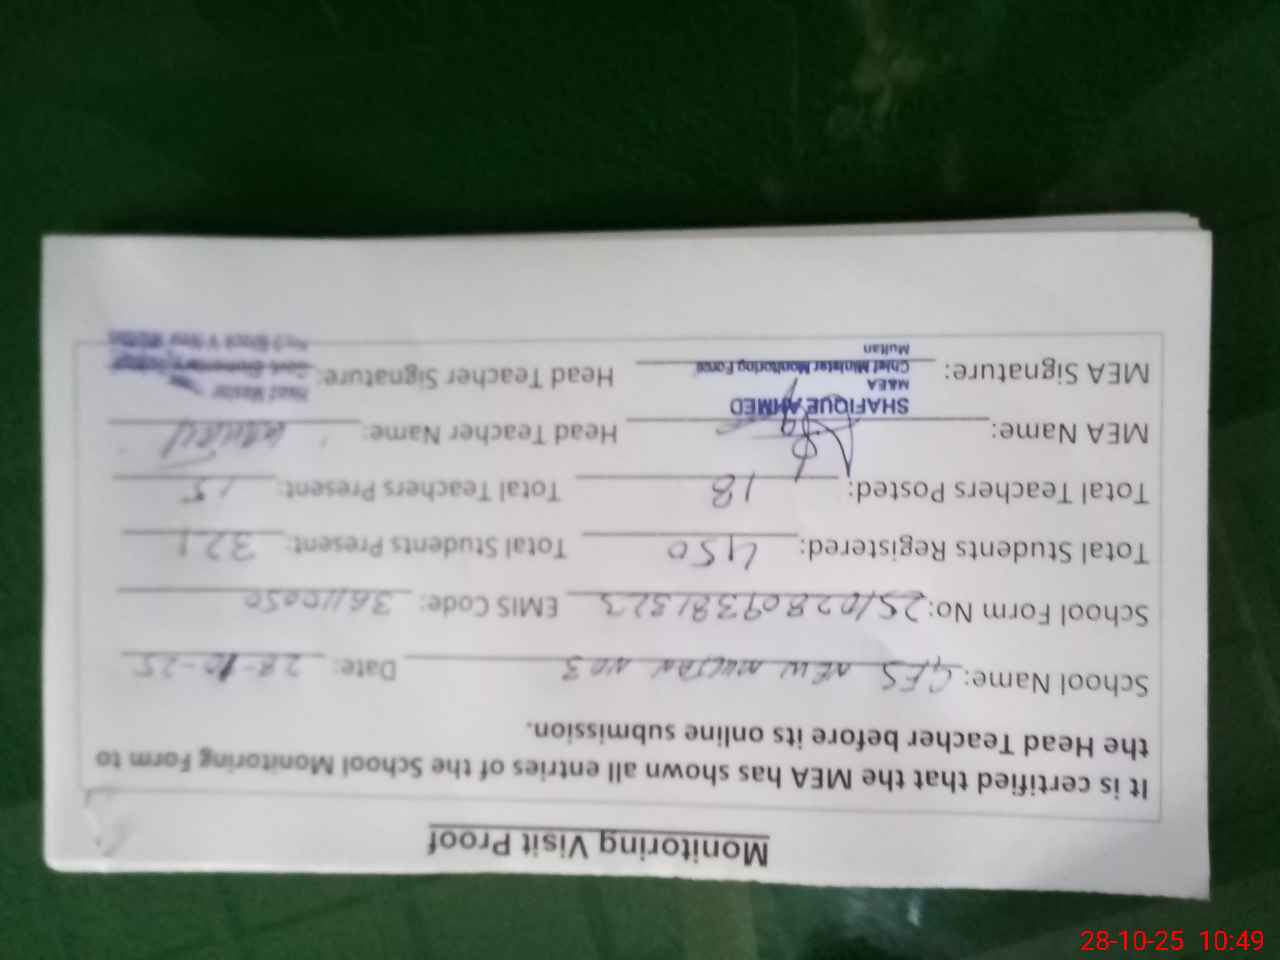 Monitoring Visit Proof
It is certified that the MEA has shown all entries of the School Monitoring Form to
the Head Teacher before its online submission.
School Name: GES NEW MULTAN NO 3 Date: 28-10-25
School Form No: 25102809381323 EMIS Code: 36110050
Total Students Registered: 450 Total Students Present: 321
Total Teachers Posted: 18 Total Teachers Present: 15
MEA Name: Head Teacher Name:
SHAFIQUE AHMED
M&EA
Chief Minister Monitoring Force
Multan
MEA Signature: Head Teacher Signature:
Head Master
Govt. Elementary School
No.3 Block V New Multan
28-10-25 10:49